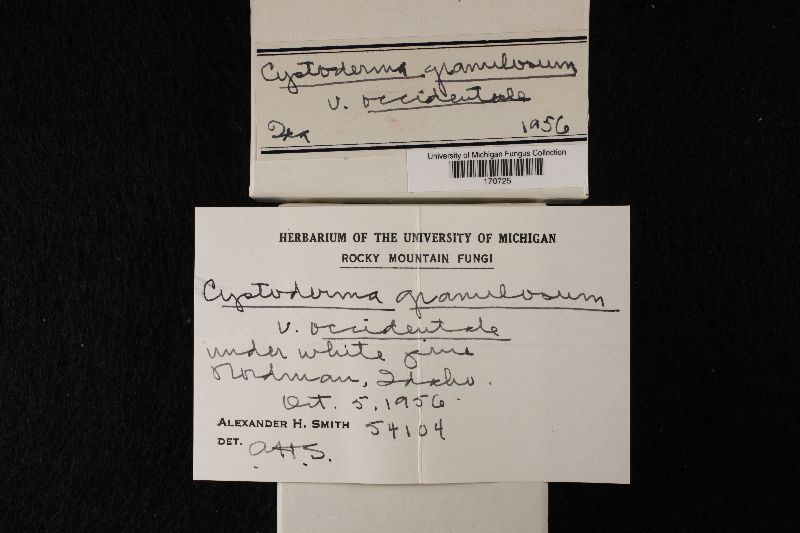 Cystoderma granulosum
v. occidentale
Ida 1956
University of Michigan Fungus Collection
170725
HERBARIUM OF THE UNIVERSITY OF MICHIGAN
ROCKY MOUNTAIN FUNGI
Cystoderma granulosum
v. occidentale
under white pine
Nordman, Idaho.
Oct. 5, 1956.
ALEXANDER H. SMITH 54104
DET. AHS.